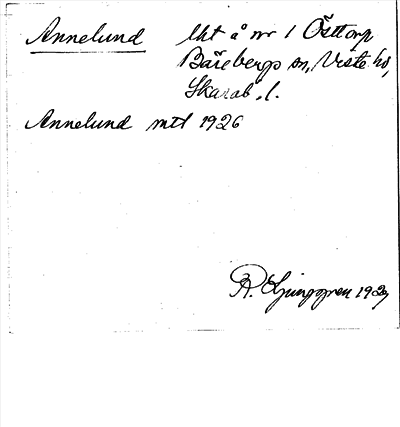 Annelund lht å nr 1 Östtorp
Bärebergs sn, Viste hd,
Skarab. l.
Annelund mtl 1926
R. Ljunggren 1927